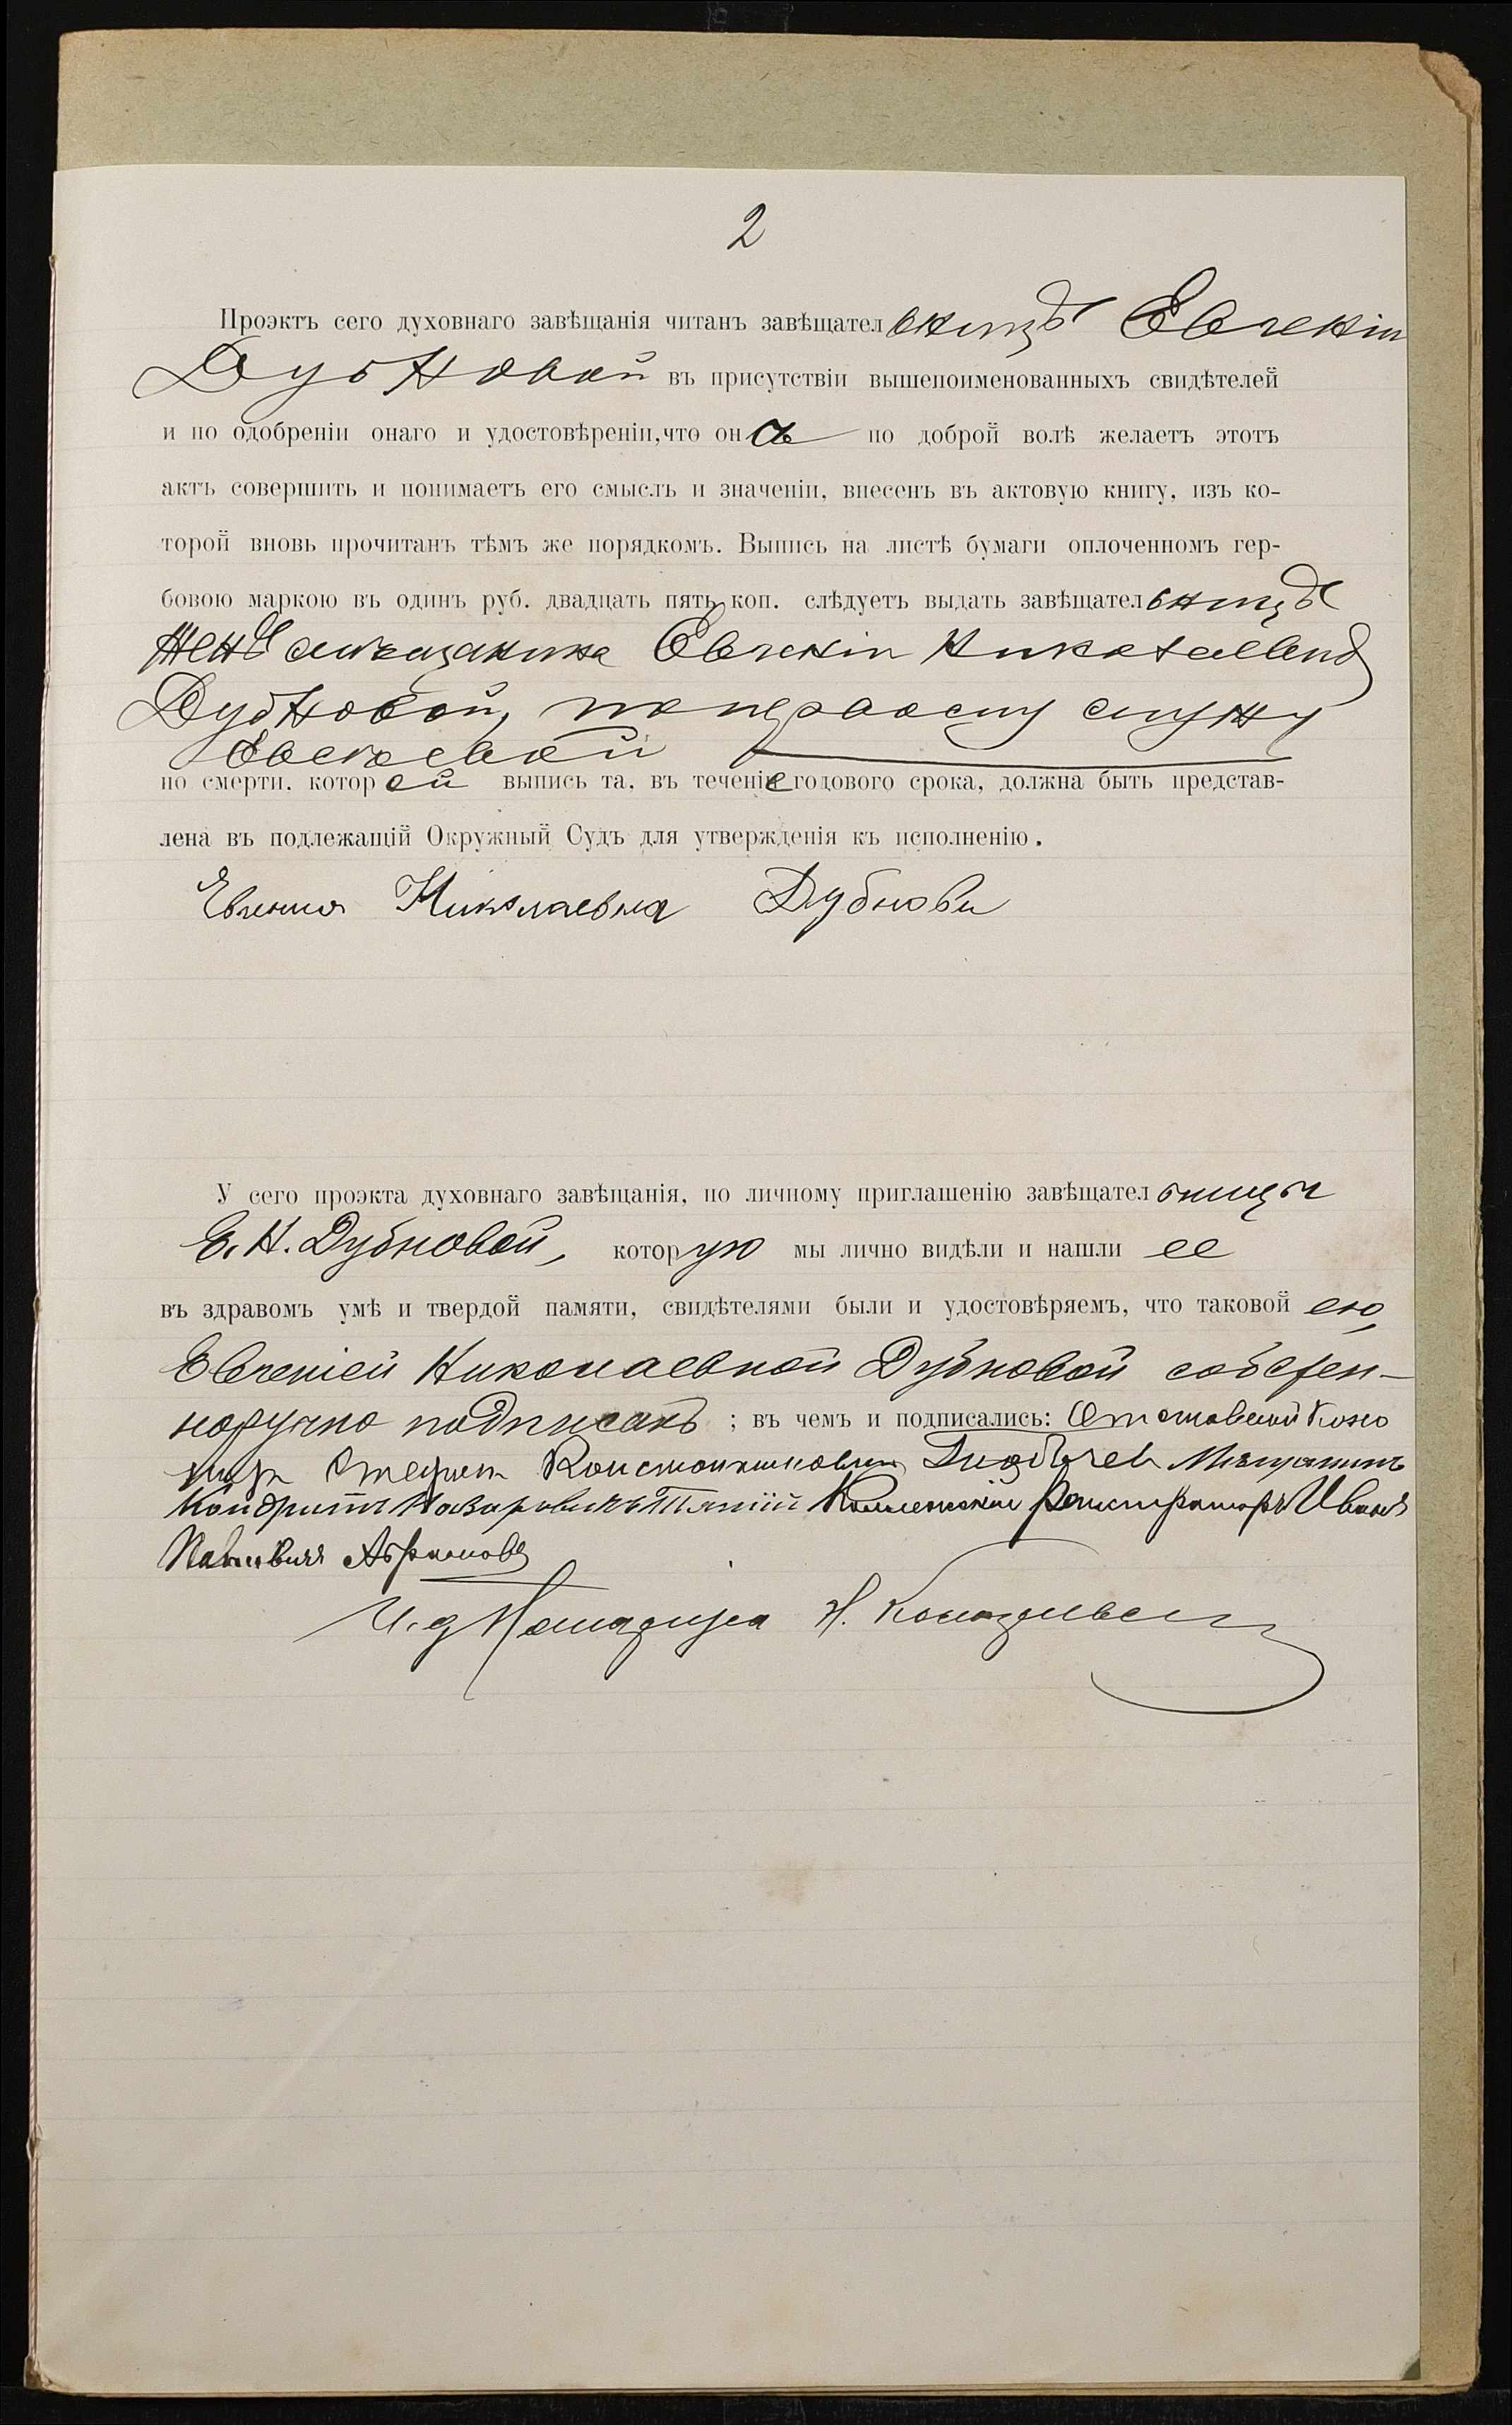 2
Проэктъ сего духовнаго завѣщанія читанъ завѣщательницѣ Евгеніи
Дубновой въ присутствіи вышепоименованныхъ свидѣтелей
и по одобреніи онаго и удостовѣреніи, что она по доброй волѣ желаетъ этотъ
актъ совершить и понимаетъ его смыслъ и значеніи, внесенъ въ актовую книгу, изъ ко-
торой вновь прочитанъ тѣмъ же порядкомъ. Выпись на листѣ бумаги оплоченномъ гер-
бовою маркою въ одинъ руб. двадцать пять коп. слѣдуетъ выдать завѣщательницѣ
женѣ мѣщанина Евгеніи Николаевнѣ
Дубновой, по первому мужу
по смерти, которой выпись та, въ теченіе годового срока, должна быть представ-
лена въ подлежащій Окружный Судъ для утвержденія къ исполненію.
Евгенія Николаевна Дубнова
У сего проэкта духовнаго завѣщанія, по личному приглашенію завѣщательницы
Е. Н. Дубновой, которую мы лично видѣли и нашли ее
въ здравомъ умѣ и твердой памяти, свидѣтелями были и удостовѣряемъ, что таковой ею,
Евгеніей Николаевной Дубновой собствен-
норучно подписанъ ; въ чемъ и подписались: Отставной Кано
ниръ Константиновичъ Мѣщанинъ
Кондратъ Назаровичъ Коллежскій Регистраторъ Иванъ
Павловичъ
И. д. Нотаріуса Н.